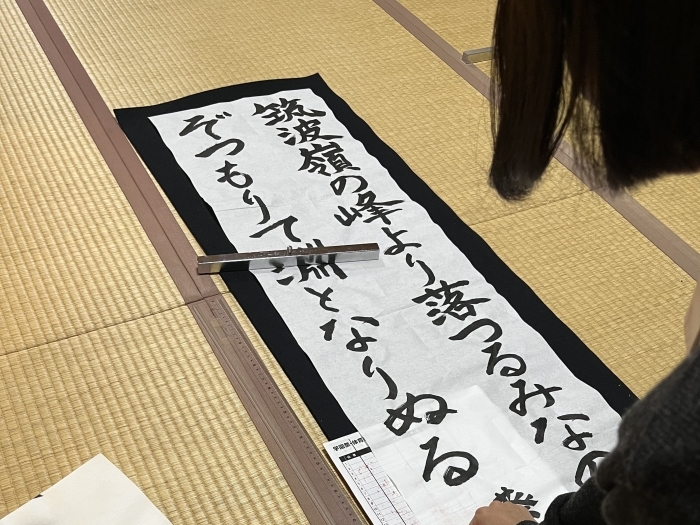 筑波嶺の峰より落つるみなの
ぞつもりて淵となりぬる
業